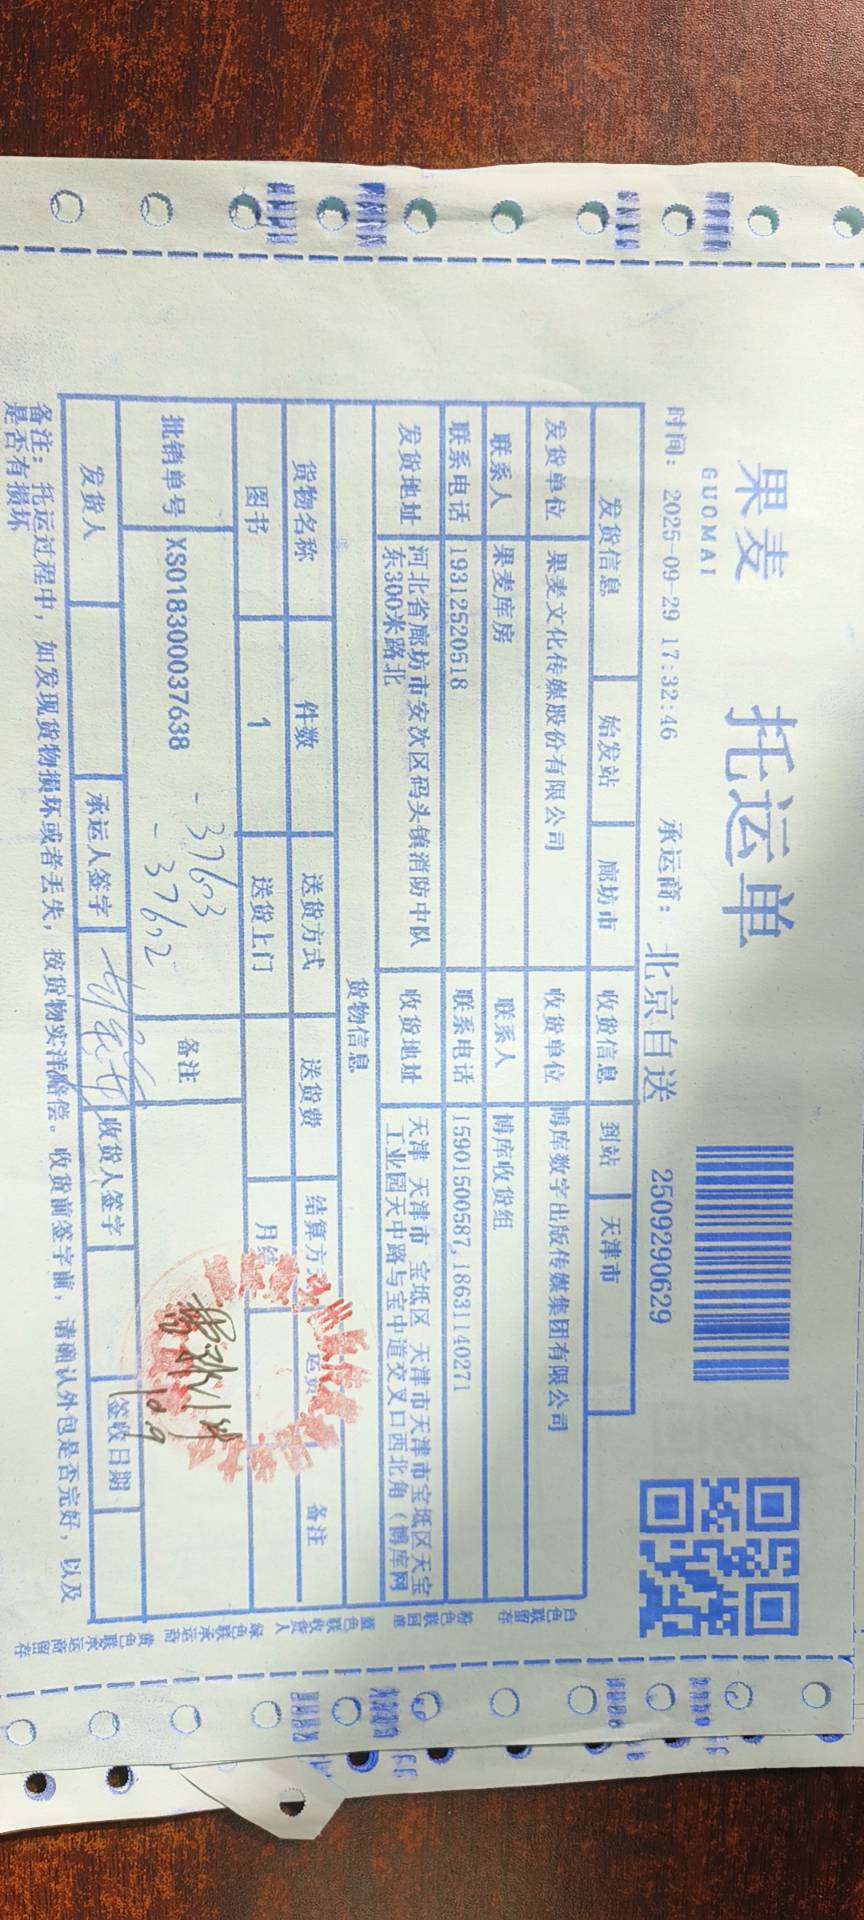 果麦
GUOMAI
托运单
时间: 2025-09-29 17:32:46 承运商: 北京自送 2509290629
发货信息 始发站 廊坊市 收货信息 到站 天津市
发货单位 果麦文化传媒股份有限公司 收货单位 博库数字出版传媒集团有限公司
联系人 果麦库房 联系人 博库收货组
联系电话 19312520518 联系电话 15901500587,18631140271
发货地址 河北省廊坊市安次区码头镇消防中队东300米路北 收货地址 天津 天津市 宝坻区 天津市天津市宝坻区天宝工业园天中路与宝中道交叉口西北角(博库网
货物信息
货物名称 件数 送货方式 送货费 结算方 运费 备注
图书 1 送货上门 月结
批销单号 XS018300037638 备注
-37603
-37602
发货人 承运人签字 收货人签字 签收日期
10.9
备注: 托运过程中, 如发现货物损坏或者丢失, 按货物实洋赔偿。收货前签字前, 请确认外包是否完好, 以及
是否有损坏
白色联留存 粉色联回单 蓝色联收货人 绿色联承运商 黄色联承运商留存